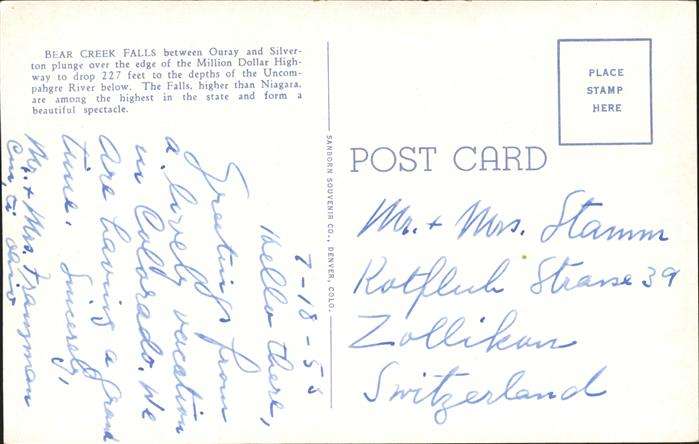 BEAR CREEK FALLS between Ouray and Silver-
ton plunge over the edge of the Million Dollar High-
way to drop 227 feet to the depths of the Uncom-
pahgre River below. The Falls, higher than Niagara,
are among the highest in the state and form a
beautiful spectacle.
7-18-55
Hello there,
Greetings from
a lovely vacation
in Colorado. We
are having a grand
time. Sincerely,
Mr. + Mrs. Franzman
SANBORN SOUVENIR CO., DENVER, COLO.
PLACE
STAMP
HERE
POST CARD
Mr. + Mrs. Stamm
Rotfluh Strasse 39
Zollikon
Switzerland